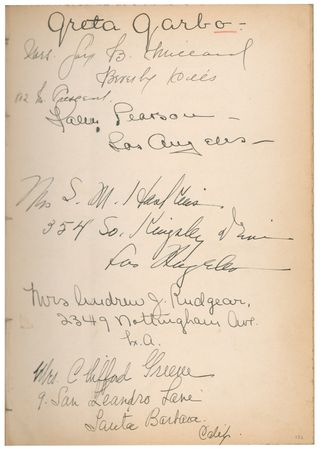 Greta Garbo -
Mrs. Guy B.
Beverly Hills
Crescent
Pearson -
Los Angeles -
Mrs S. M. Haskins
354 So. Kingsley Drive
Los Angeles
Mrs Andrew J. Rudgear,
2349 Nottingham Ave.
L.A.
Mrs. Clifford Greene
9. San Leandro Lane
Santa Barbara.
Calif.